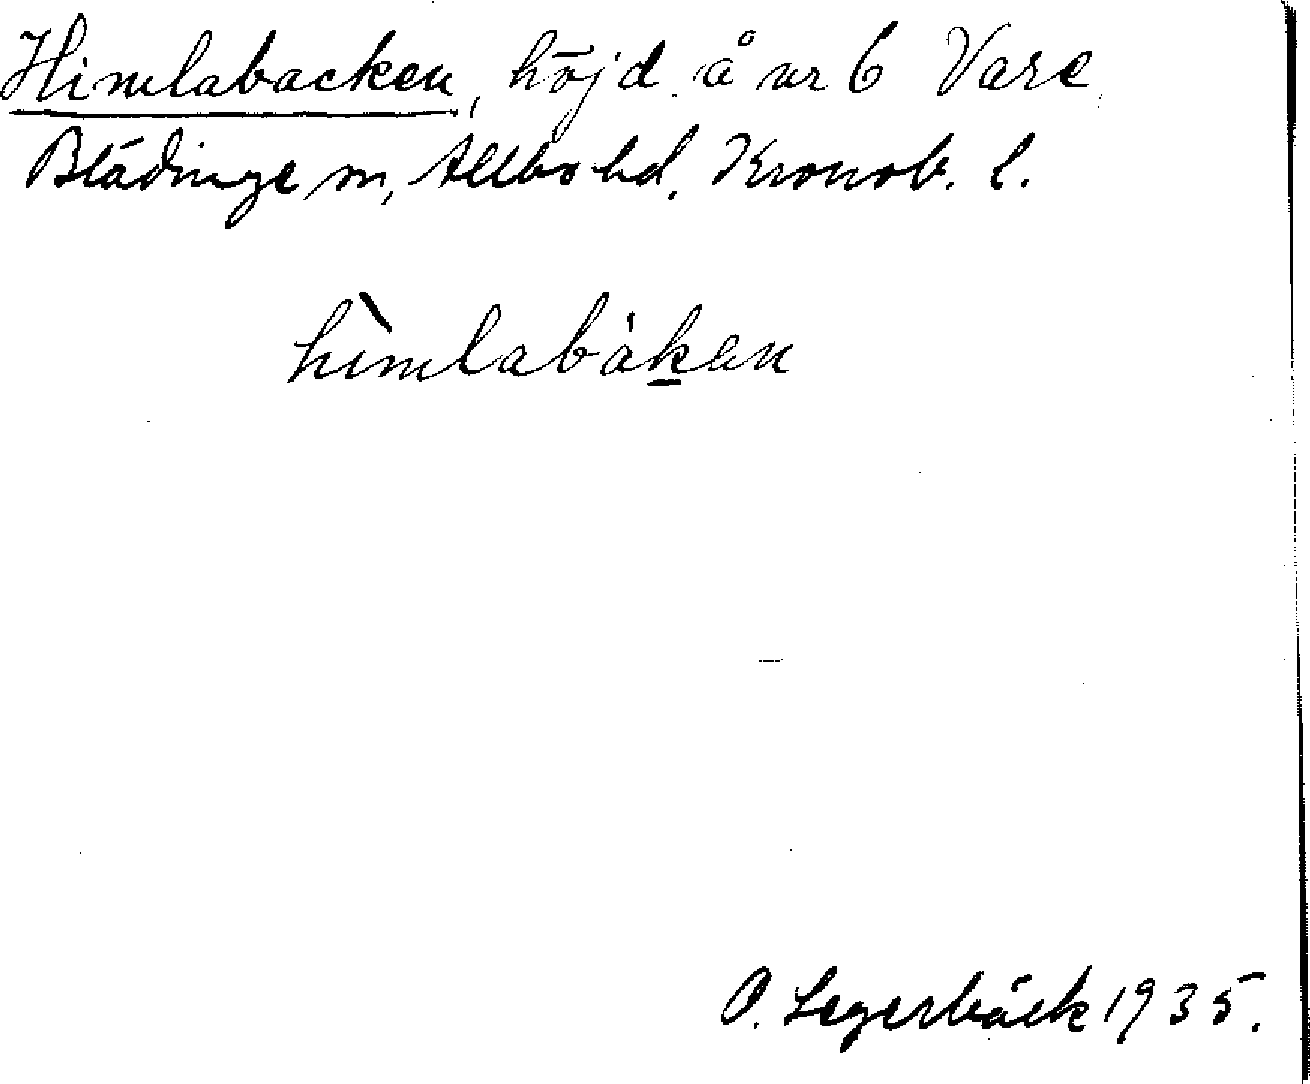 Himlabacken, höjd å nr 6 Vare
Blädinge sn, Allbo hd, Kronob. l.
hìmlabàken
O. Segerbäck 1935.